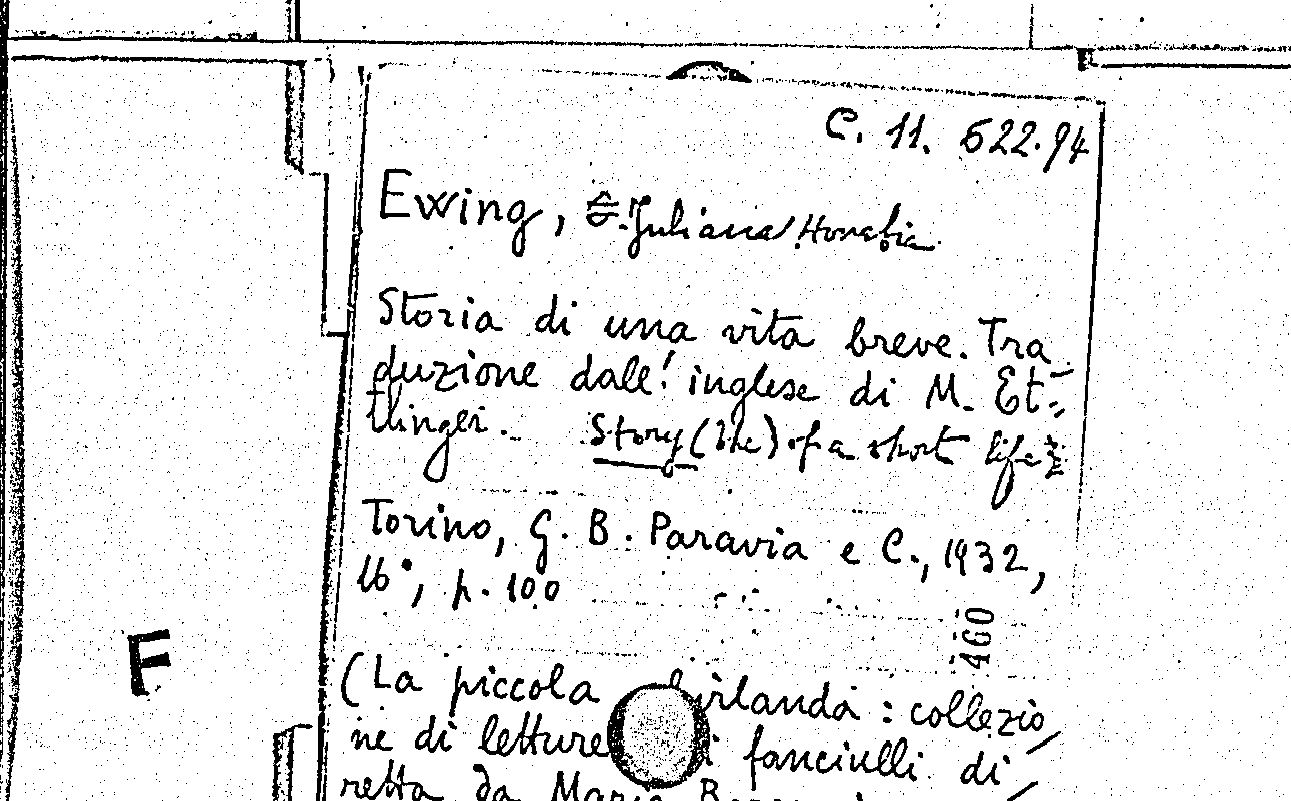 C. 11. 522.94
Ewing, Juliana Horatia
Storia di una vita breve. Tra-
duzione dall'inglese di M. Et-
tlinger. Story (the) of a short life
Torino, G. B. Paravia e C., 1932,
16°, p. 100
460
F
(La piccola ghirlanda : collezio
ne di letture fanciulli di
retta da Maria